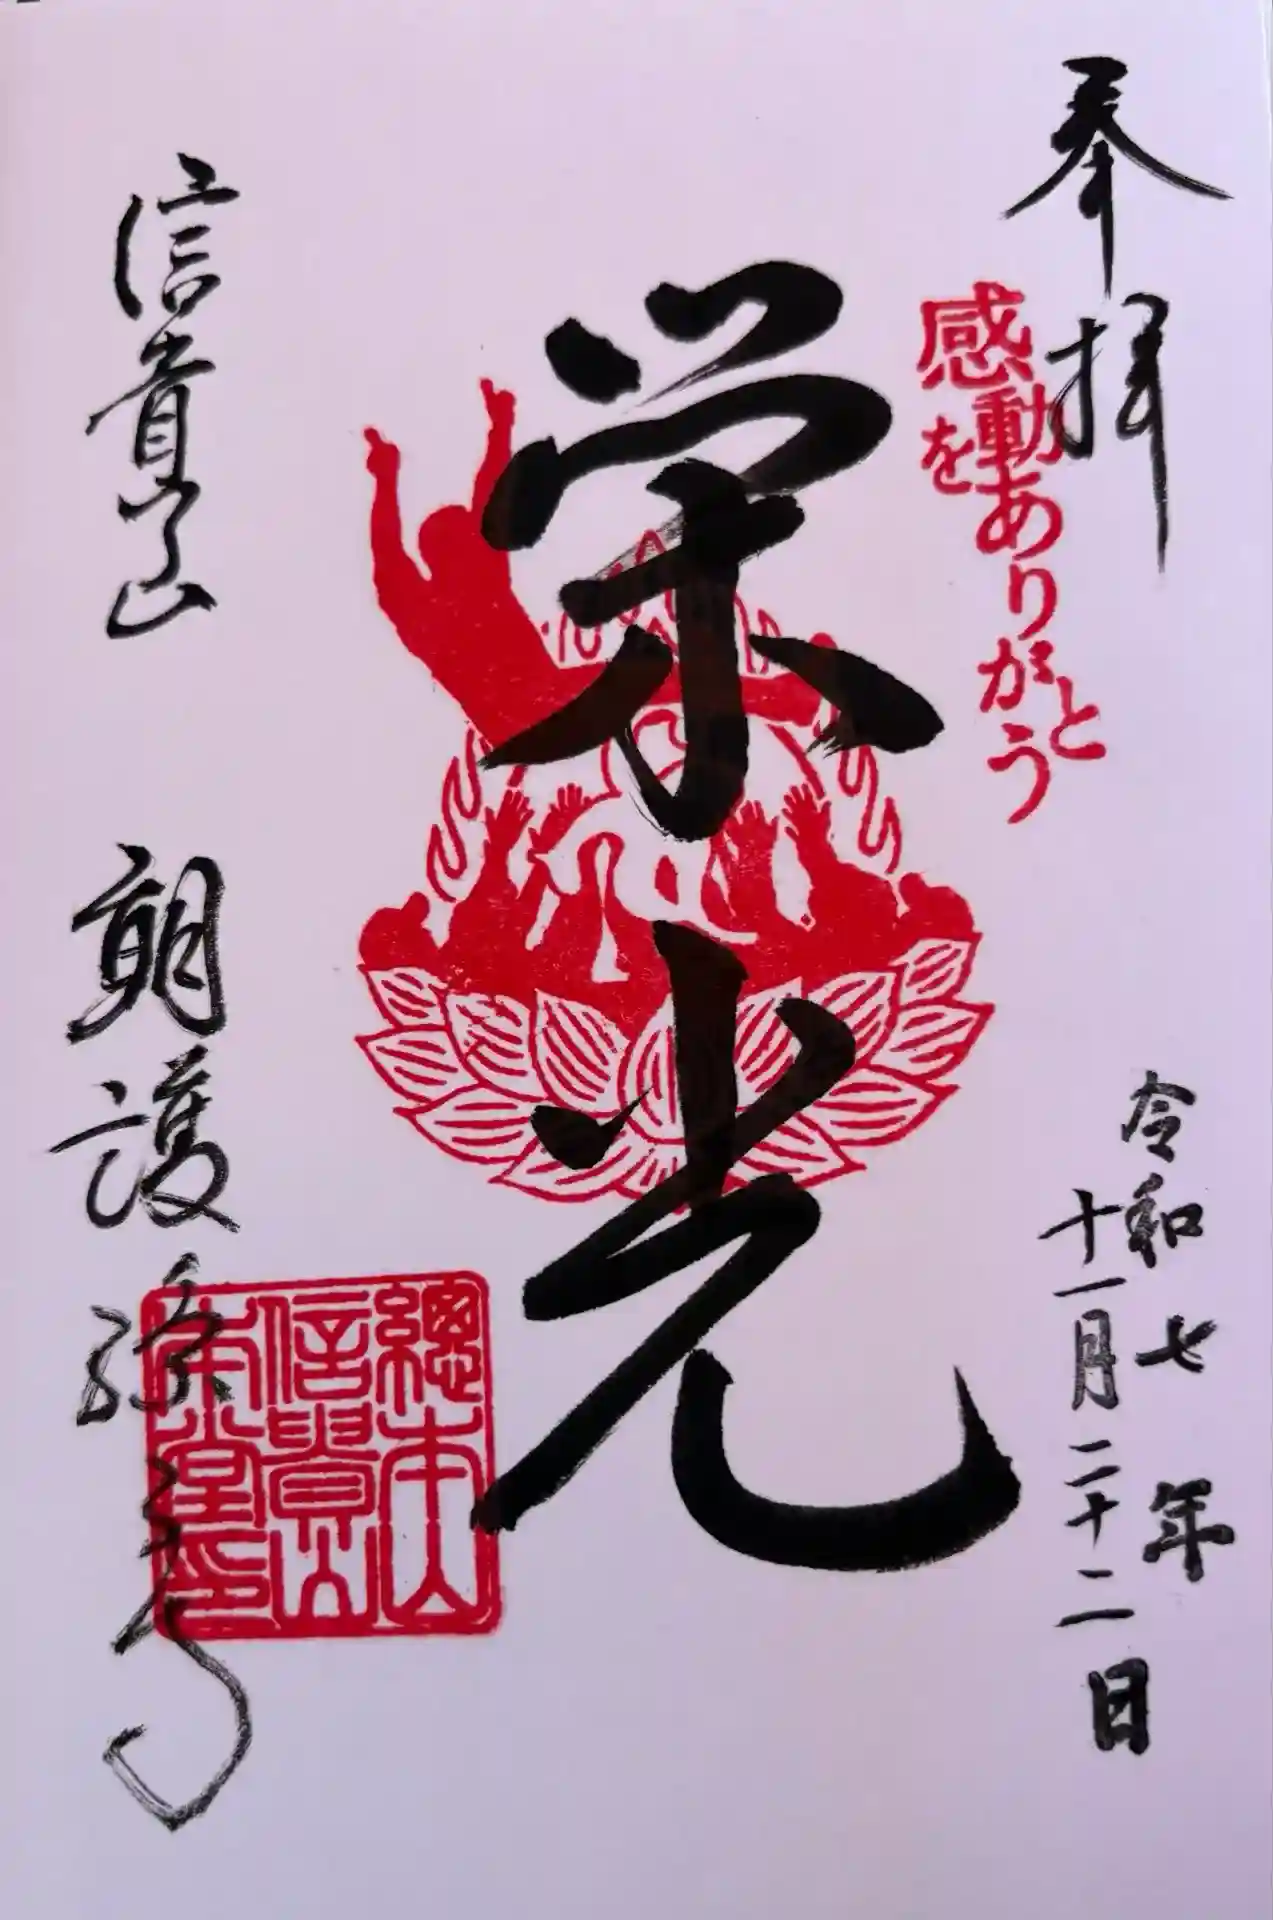 奉拝
感動を
ありがとう
令和七年
十一月二十二日
栄光
信貴山
朝護孫子寺
總本山
信貴山
本堂印